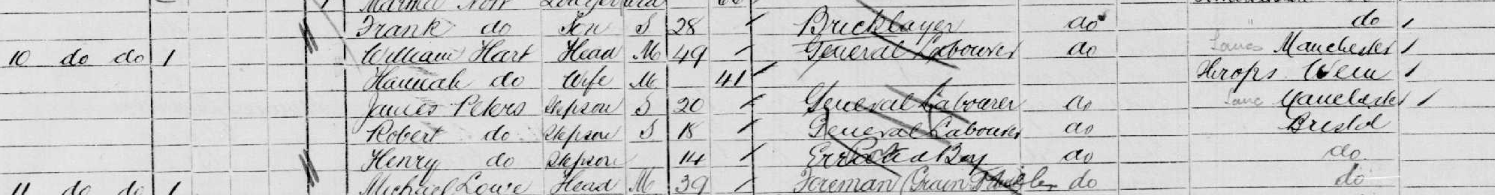 Frank do Son S 28 Bricklayer do do
10 do do 1 William Hart Head M 49 General Labourer do Lancs Manchester
Hannah do Wife M 41 Shrops Wem
James Peters Stepson S 20 General Labourer do Lanc Manchester
Robert do Stepson S 18 General Labourer do Bristol
Henry do Stepson 14 Errand Boy do do
11 do do 1 Michael Lowe Head M 39 Foreman (Grain do do